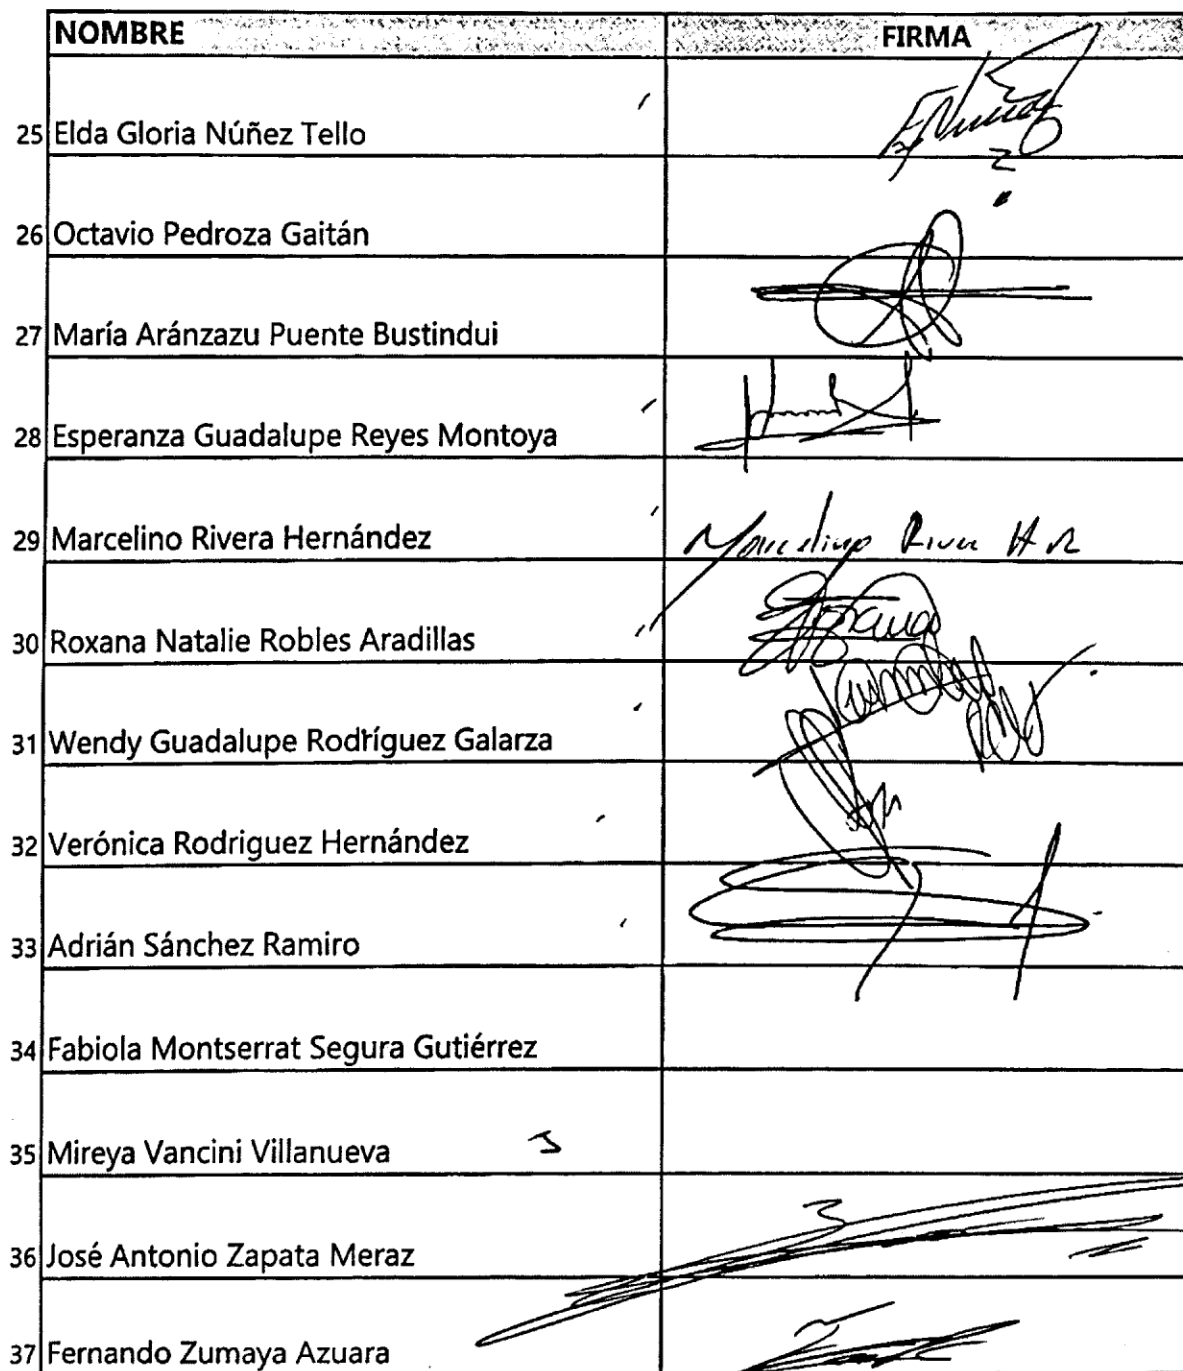 NOMBRE FIRMA
25 Elda Gloria Núñez Tello
26 Octavio Pedroza Gaitán
27 María Aránzazu Puente Bustindui
28 Esperanza Guadalupe Reyes Montoya
29 Marcelino Rivera Hernández Marcelino Rivera
30 Roxana Natalie Robles Aradillas
31 Wendy Guadalupe Rodríguez Galarza
32 Verónica Rodriguez Hernández
33 Adrián Sánchez Ramiro
34 Fabiola Montserrat Segura Gutiérrez
35 Mireya Vancini Villanueva
36 José Antonio Zapata Meraz
37 Fernando Zumaya Azuara